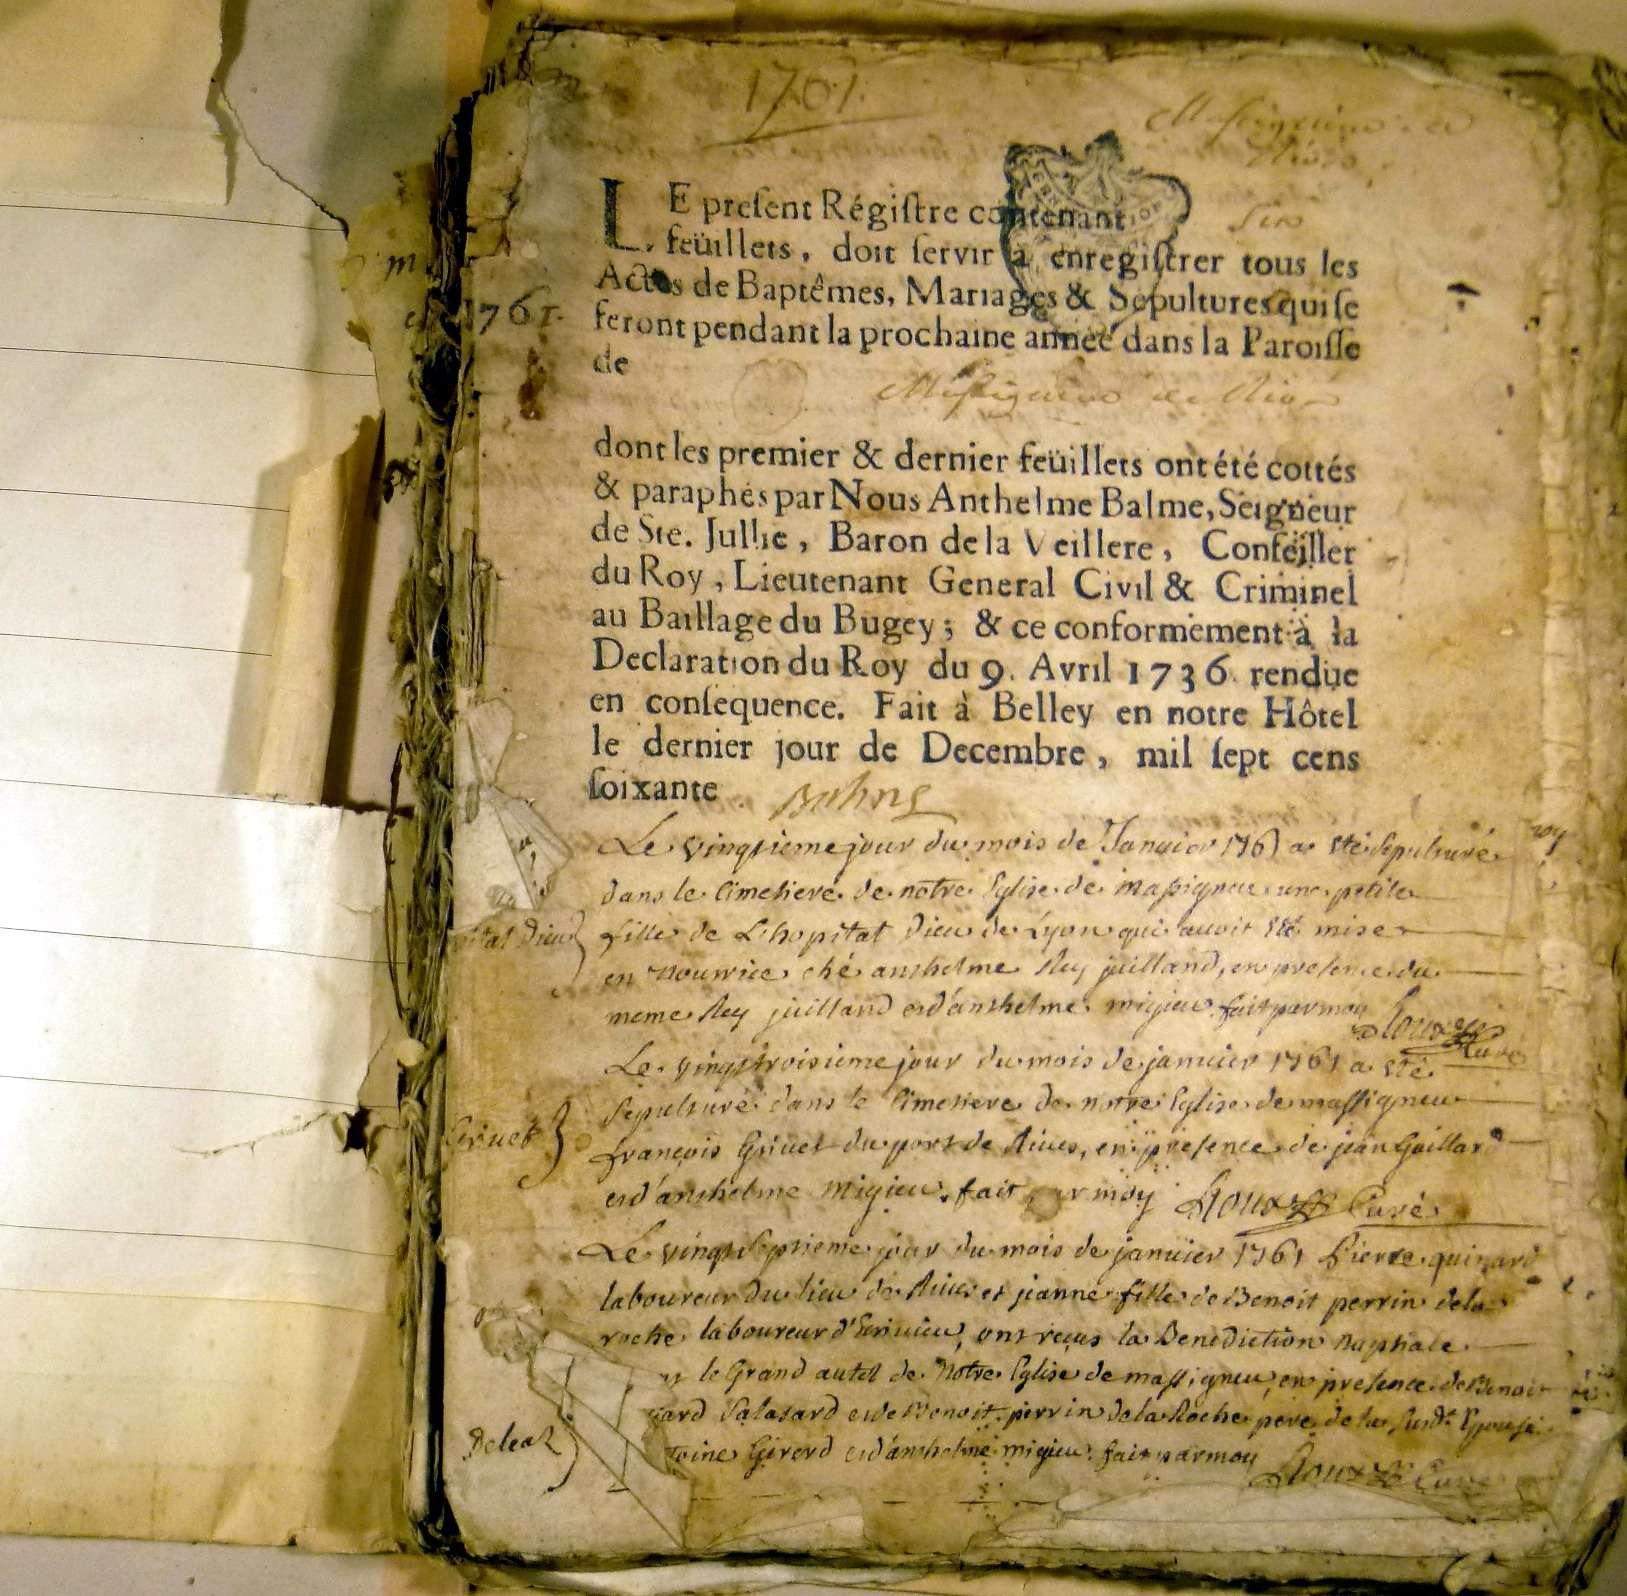 1761.
Massignieu de
Rives
Six
LE preſent Régiſtre contenant
feüillets, doit ſervir à enregiſtrer tous les
Actes de Baptêmes, Mariages & Sépultures qui ſe
feront pendant la prochaine année dans la Paroiſſe
de
Massignieu de Rives
dont les premier & dernier feüillets ont été cottés
& paraphés par Nous Anthelme Balme, Seigneur
de Ste. Jullie, Baron de la Veillere, Conſeiller
du Roy, Lieutenant General Civil & Criminel
au Baillage du Bugey; & ce conformement à la
Declaration du Roy du 9. Avril 1736. rendue
en conſequence. Fait à Belley en notre Hôtel
le dernier jour de Decembre, mil ſept cens
ſoixante
1761.
Le vingtieme jour du mois de Janvier 1761 a eté sepulturé
dans le Cimetiere de notre Eglise de Massigneu une petite
fille de L'hopital Dieu de Lyon qui avoit eté mise
en nourrice ché anthelme Rey juilland, en presence du
meme Rey juilland et d'anthelme migieu. fait par moy
Roux Curé
Le vingt troisieme jour du mois de janvier 1761 a eté
Sepulturé dans le Cimetiere de notre Eglise de massigneu
françois Grivet du port de Rives, en presence de jean Gaillard
et d'anthelme Migieu. fait par moy Roux Curé
Grivet
Le vingt Septieme jour du mois de janvier 1761 Pierre quinard
laboureur du lieu de Rives et jeanne fille de Benoit perrin dela
roche laboureur d'Ecrivieu, ont reçus la Benediction nuptiale
le Grand autel de Notre Eglise de massigneu, en presence de Benoit
Salasard et de Benoit perrin de la Roche pere de la susd.e Epouse
Girerd et d'anthelme migieu. fait par moy
Roux Curé